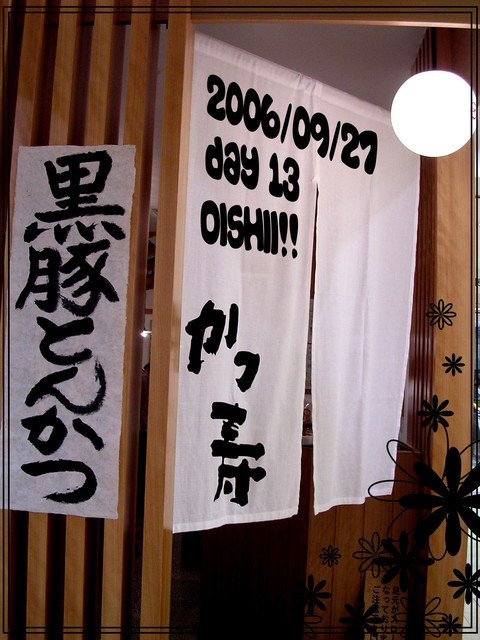 黒豚とんかつ
2006/09/27
day 13
OISHII!!
かつ壽